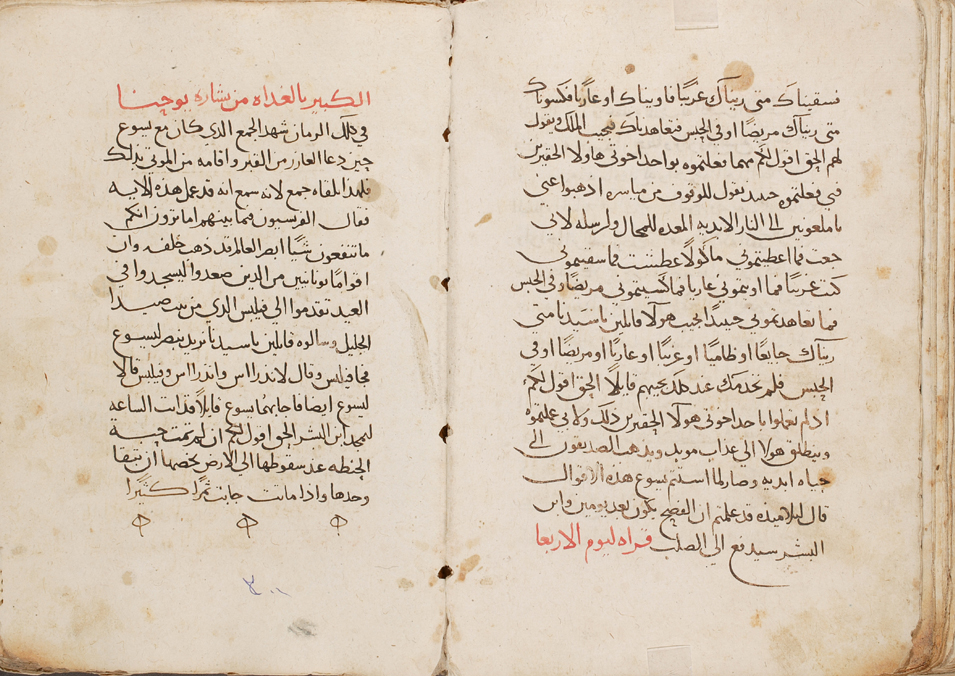 فسقيناك متى ريناك غريبًا فاويناك او عاريا فكسوناك
متى ريناك مريضًا او في الحبس فتعاهدناك فيجيب الملك ويقول
لهم الحق اقول لكم مهما فعلتموه بواحد اخوتي هاولا الحقيرين
فبي فعلتموه حينيد يقول للوقوف من مياسره اذهبوا عني
يا ملعونين الى النار الابديه المعده للمحال ولرسله لاني
جعت فما اعطيتموني ماكولًا عطشت فما سقيتموني
كنت غريبًا فما اويتموني عاريا فما كسيتموني مريضًا وفي الحبس
فما تعاهدتموني حينيدًا يجيب هولا قايلين يا سيدنا متى
ريناك جايعًا او ظاميًا او غريبًا او عاريًا او مريضًا او في
الحبس فلم نخدمك عند ذلك يجيبهم قايلًا الحق اقول لكم
اذ لم تعملوا باحد اخوتي هولا الحقيرين ذلك ولا بي علمتموه
وينطلق هولا الى عذاب موبد ويذهب الصديقون الى
حياه ابديه وصار لما استتم يسوع هذه الاقوال
قال لتلاميذه قد علمتم ان الفصح يكون بعد يومين وابن
البشر سيدفع الي الصلب قراه ليوم الاربعا
الكبير بالغداه من بشاره يوحنا
في ذلك الزمان شهد الجمع الذي كان مع يسوع
حين دعا العازر من القبر واقامه من الموتى بذلك
فلهذا تلقاه جمع لانه سمع انه قد عمل هذه الايه
فقال الفرسيون فيما بينهم اما ترون انكم
ما تنفعون شيًا ابصر العالم قد ذهب خلفه وان
اقوامًا يونانيين من الذين صعدوا ليسجدوا في
العيد تقدموا الي فيلبس الذي من بيت صيدا
الجليل وسالوه قايلين يا سيد نريد ننظر ليسوع
فجا فيلبس وقال لاندراس واندراس وفيلبس قالا
ليسوع ايضا فاجابهما يسوع قايلًا قد اتت الساعه
ليتمجد ابن البشر الحق اقول لكم ان لم تمت حبه
الحنطه عند سقوطها الي الارض يخصها ان تبقا
وحدها واذا ماتت جابت ثمرًا كثيرًا